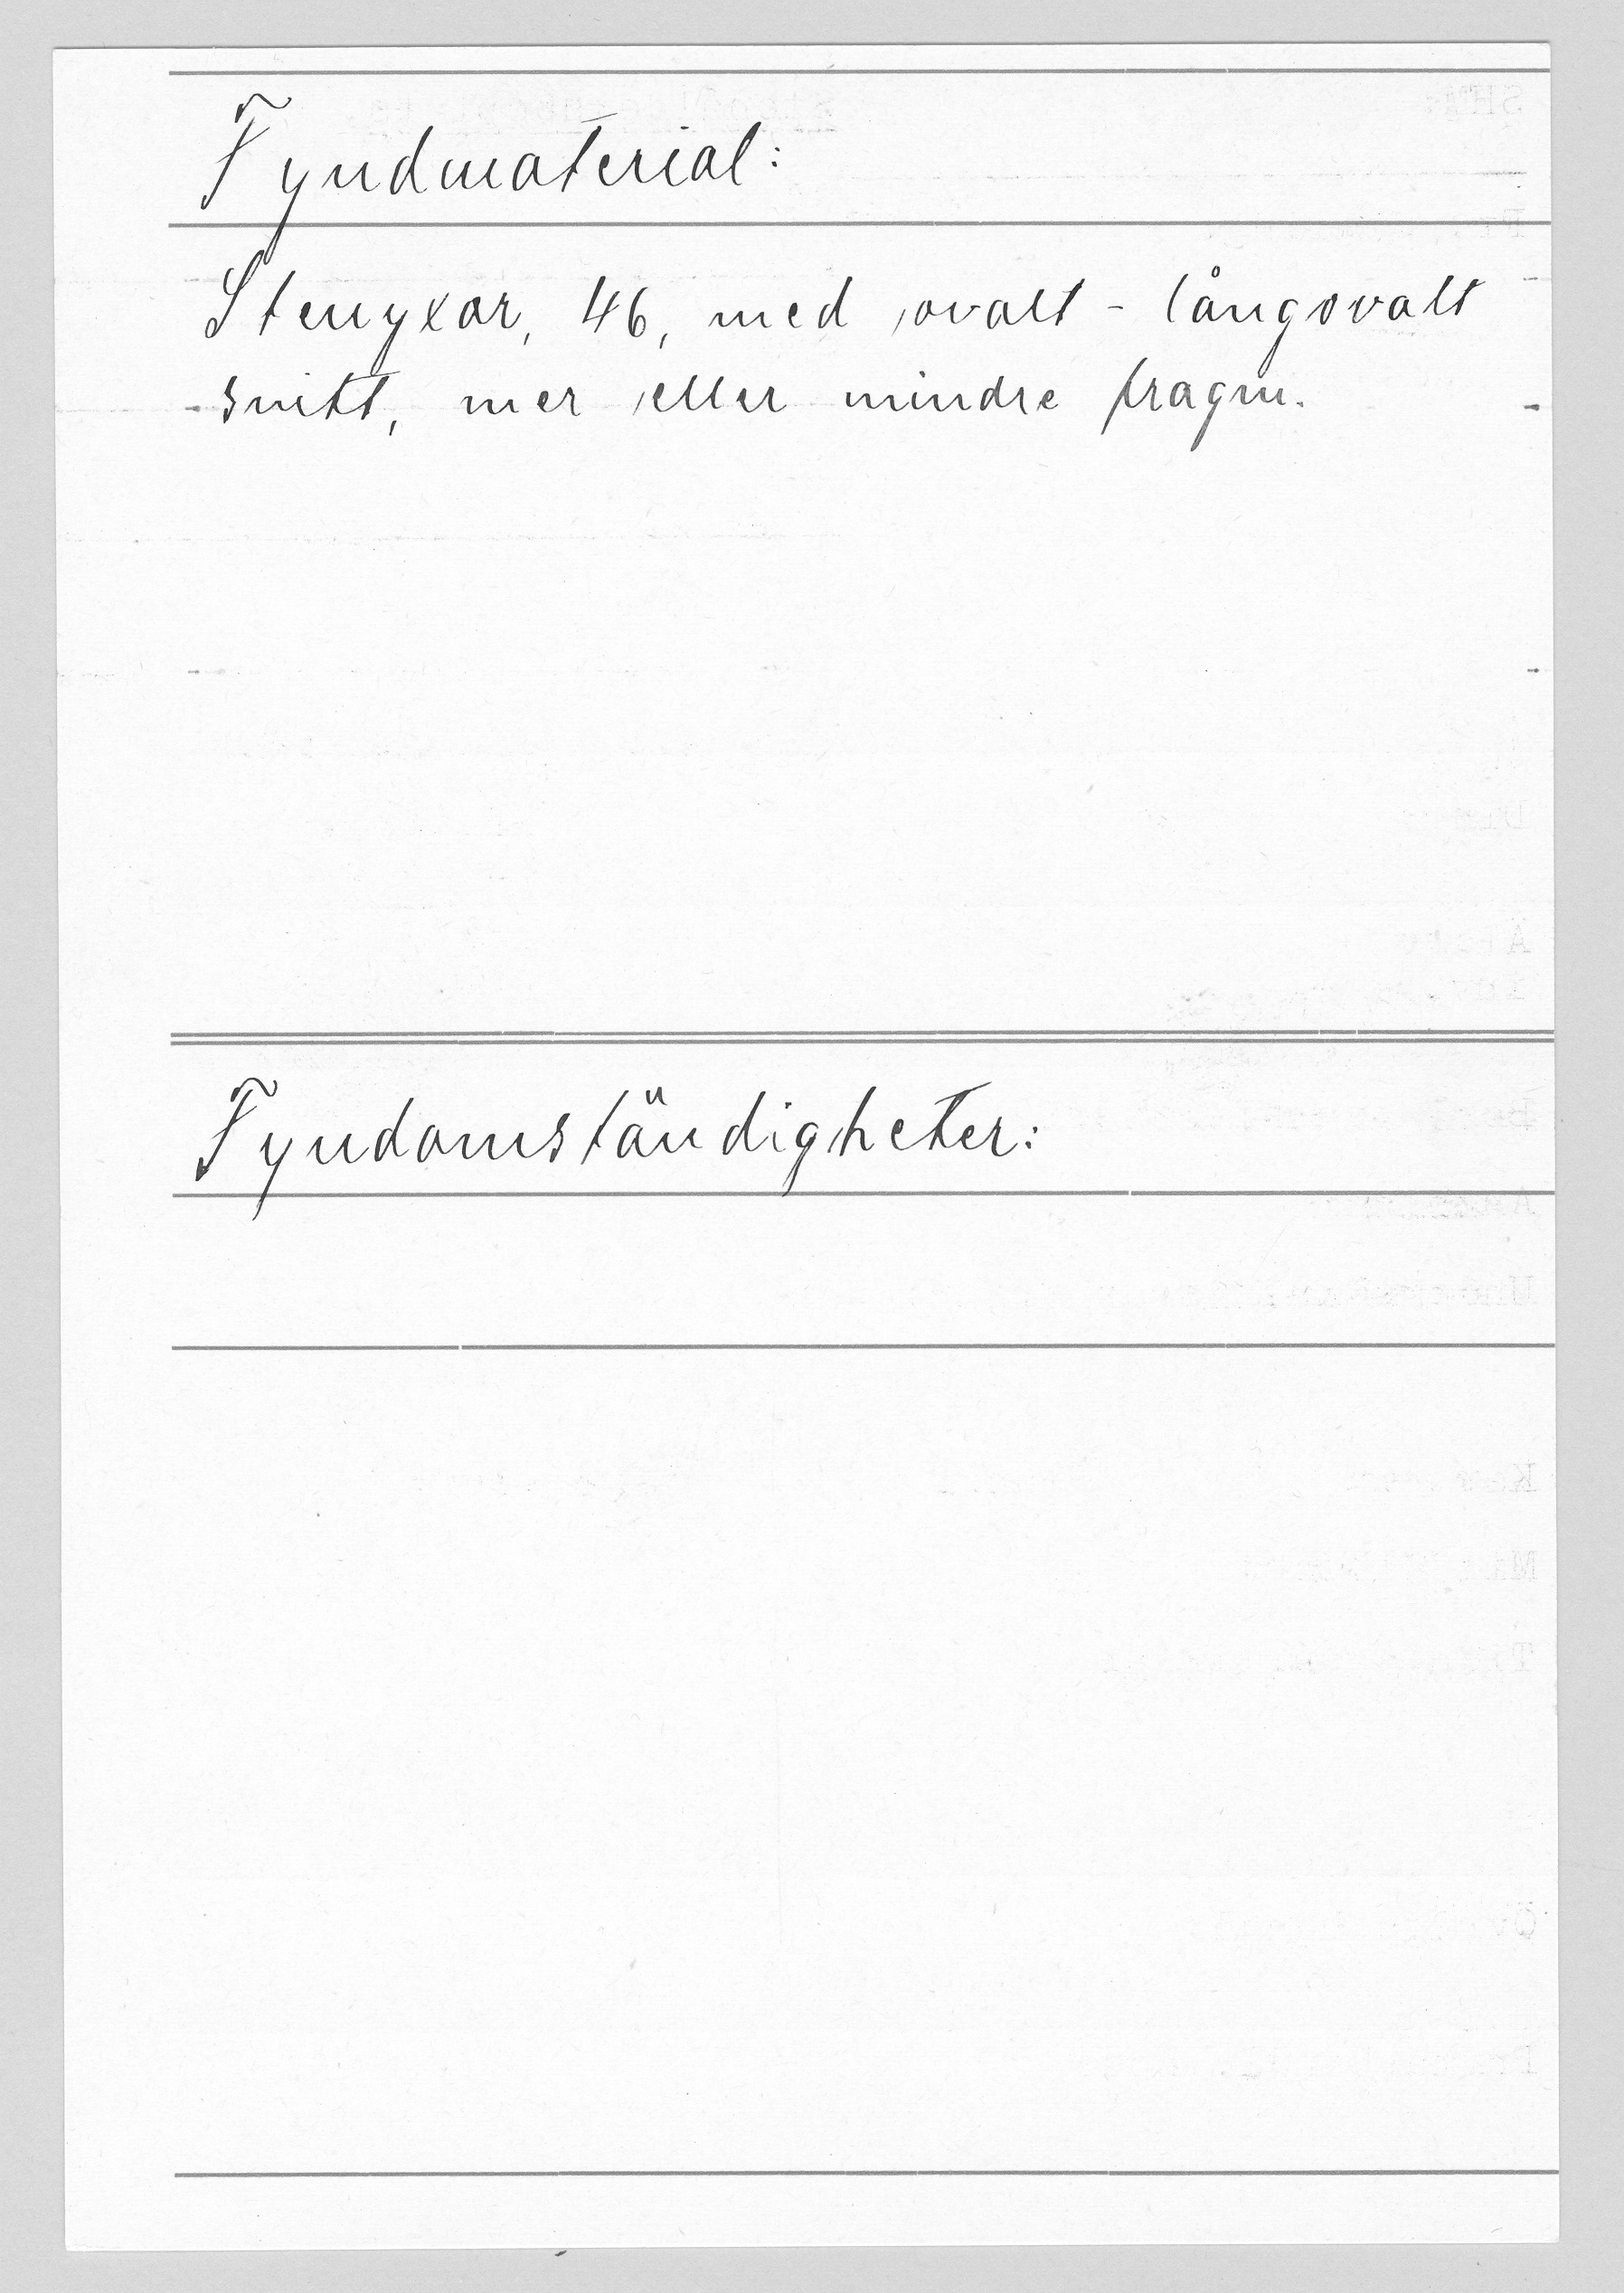 Fyndmaterial:
Stenyxor, 46, med ovalt - långovalt
snitt, mer eller mindre fragm.
Fyndomständigheter: